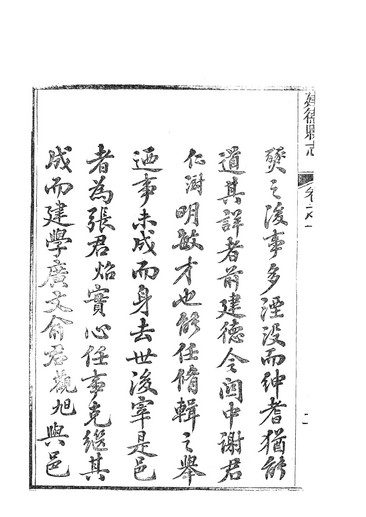 建德縣志
卷之一
燹之後事多湮没而紳耆猶能
道其詳者前建德令閩中謝君
仁澍明敏才也能任脩輯之舉
迺事未成而身去世後宰是邑
者為張君焰實心任事克繼其
成而建學廣文俞君旭與邑